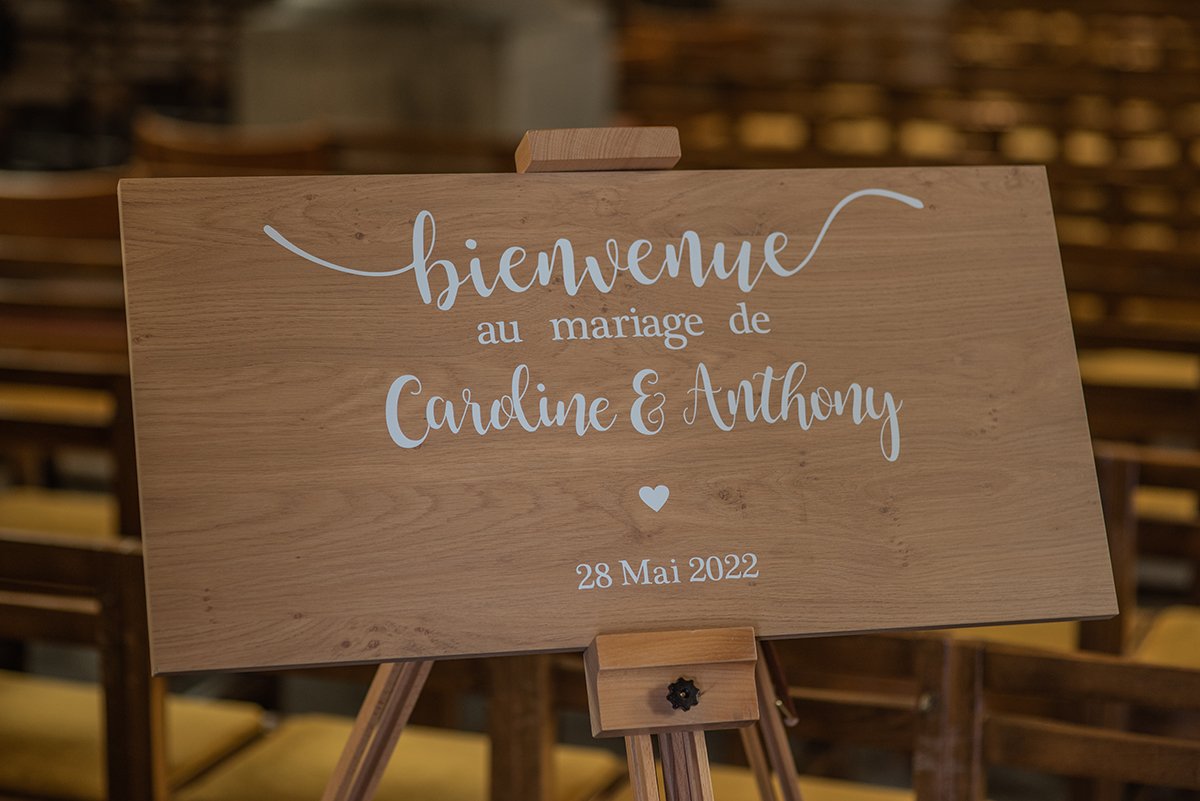 bienvenue
au mariage de
Caroline & Anthony
28 Mai 2022